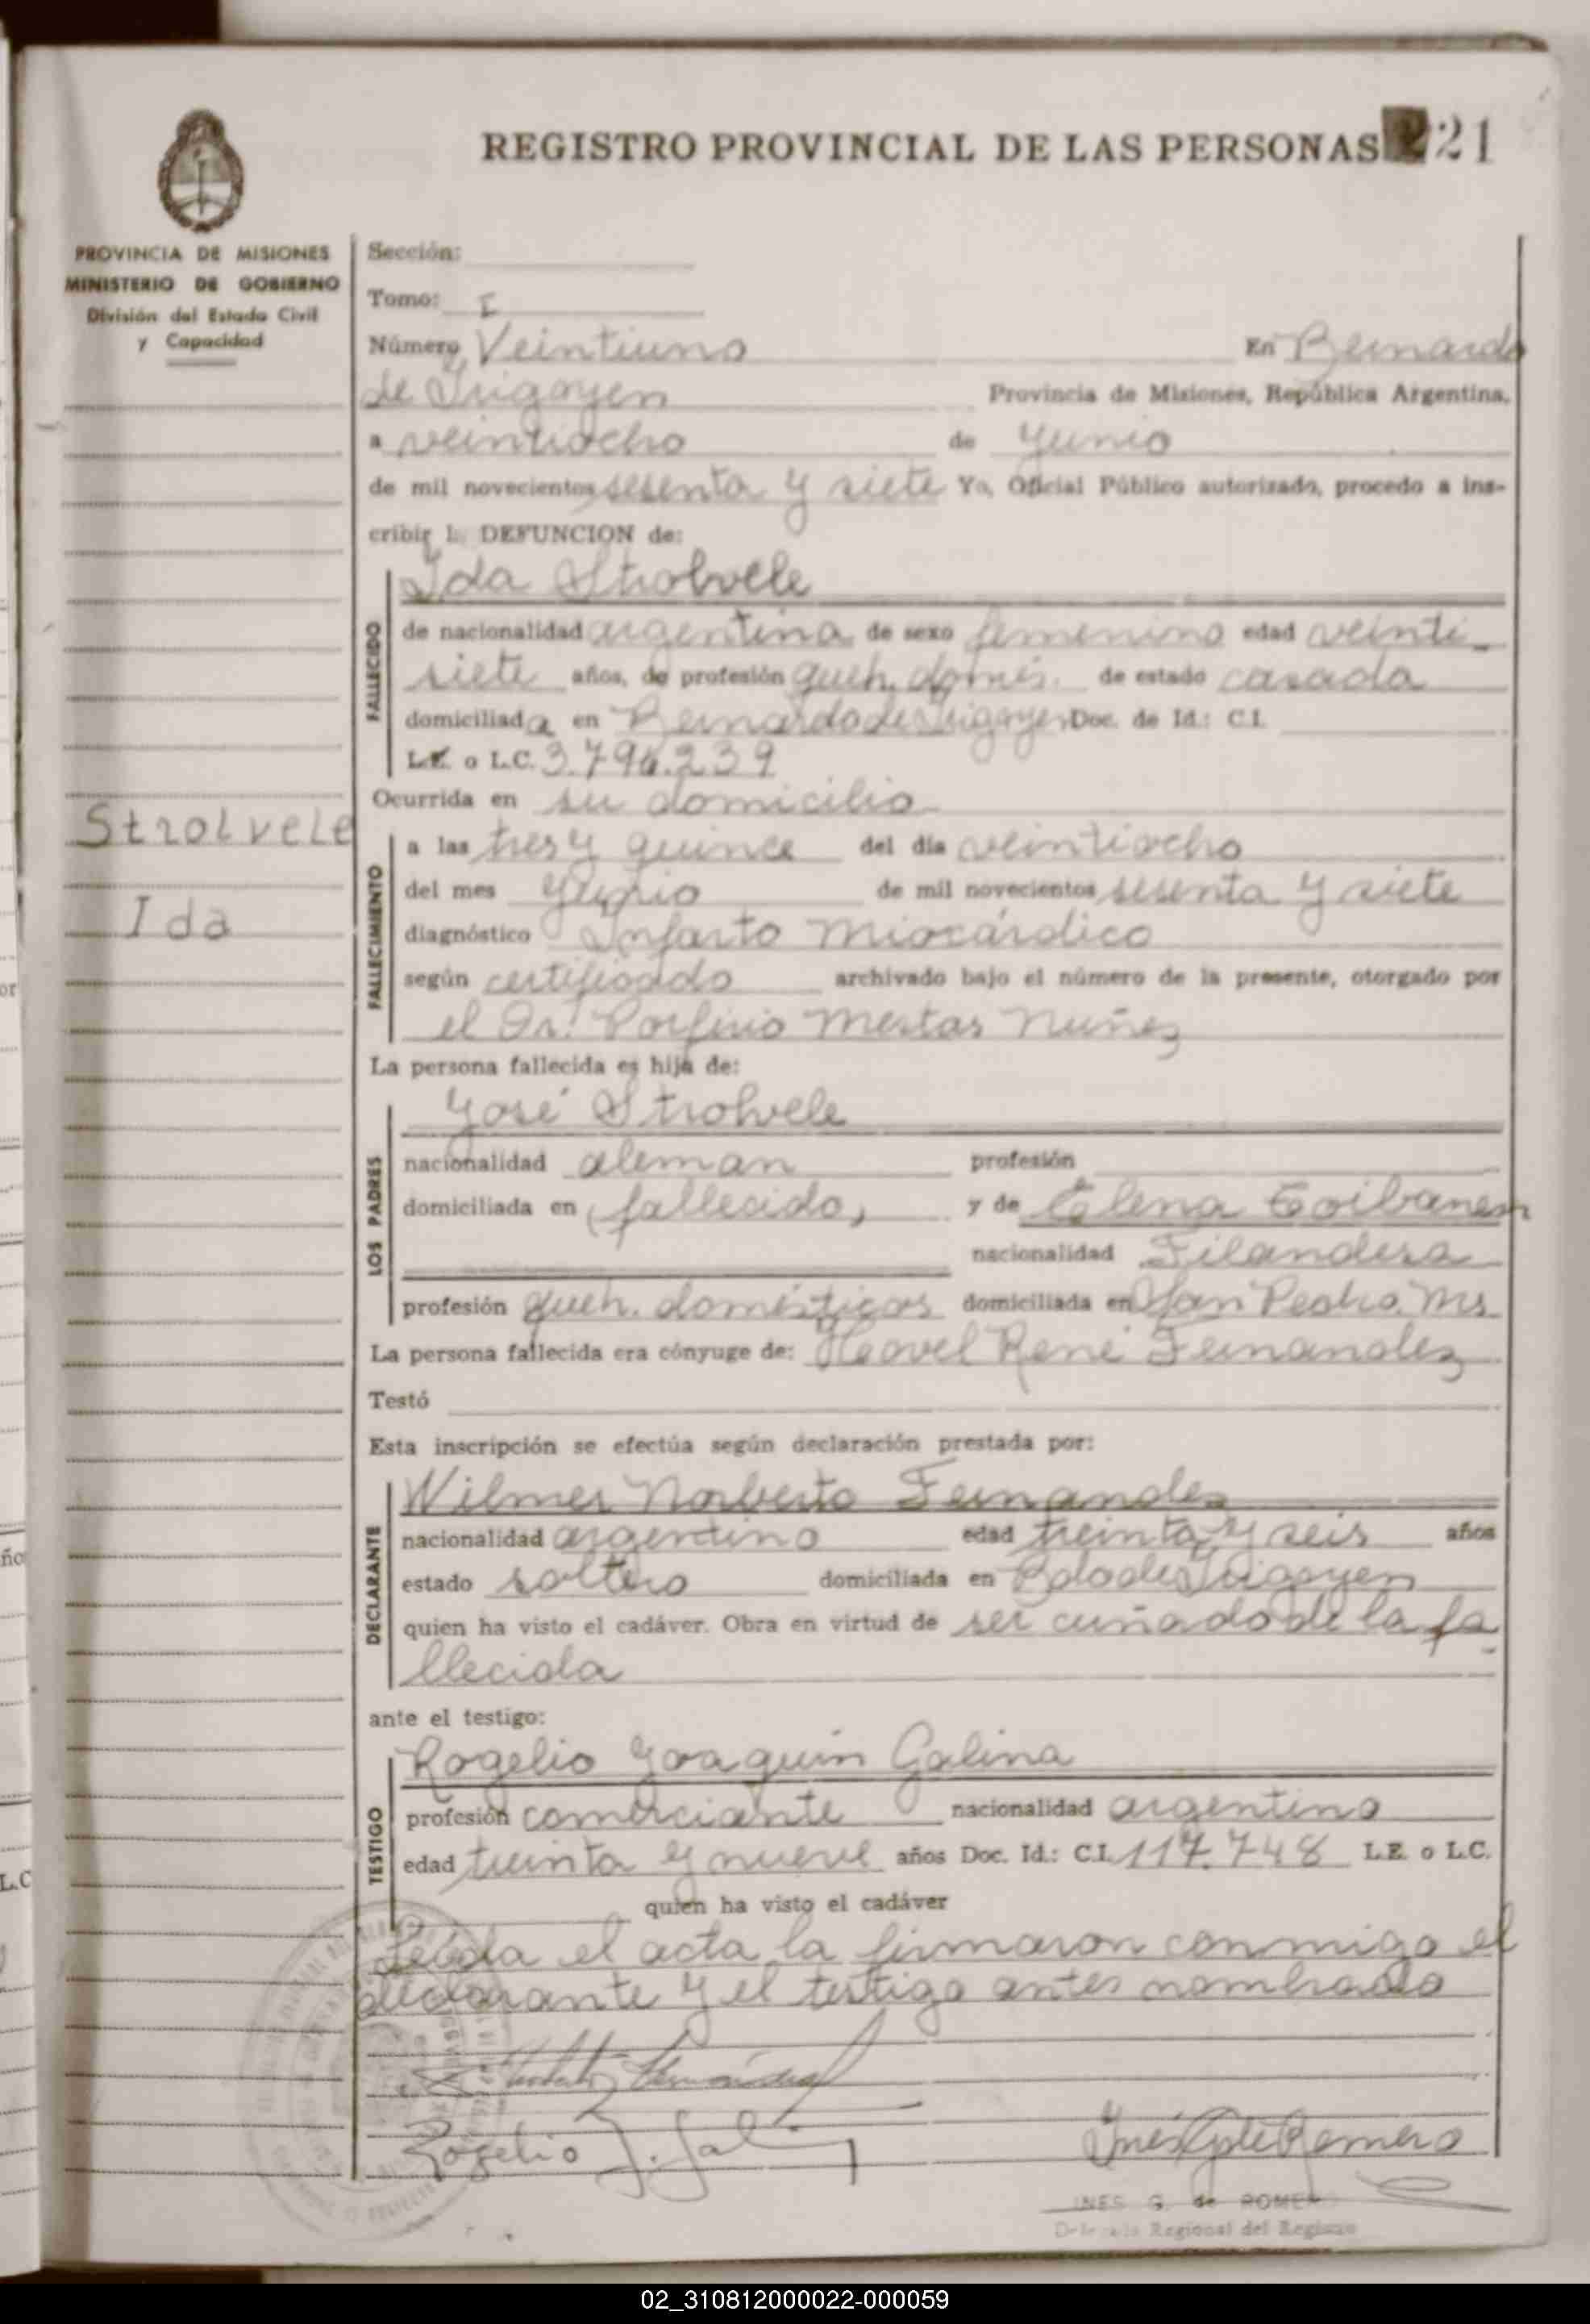 REGISTRO PROVINCIAL DE LAS PERSONAS 21
PROVINCIA DE MISIONES
MINISTERIO DE GOBIERNO
División del Estado Civil
y Capacidad
Strolvele
Ida
Sección:
Tomo: I
Número Veintiuno En Bernardo
de Irigoyen Provincia de Misiones, República Argentina,
a veintiocho de Junio
de mil novecientos sesenta y siete Yo, Oficial Público autorizado, procedo a ins-
cribir la DEFUNCION de:
Ida Strolvele
FALLECIDO
de nacionalidad argentina de sexo femenino edad veinti
siete años, de profesión queh. domés. de estado casada
domiciliada en Bernardo de Irigoyen Doc. de Id.: C.I.
L.E. o L.C. 3.794.239
Ocurrida en su domicilio
FALLECIMIENTO
a las tres y quince del día veintiocho
del mes Junio de mil novecientos sesenta y siete
diagnóstico Infarto Miocárdico
según certificado archivado bajo el número de la presente, otorgado por
el Dr. Porfirio Mestas Nuñez
La persona fallecida es hija de:
LOS PADRES
José Strolvele
nacionalidad aleman profesión
domiciliada en (fallecido) y de Elena
nacionalidad Filandesa
profesión queh. domésticos domiciliada en San Pedro. Ms
La persona fallecida era cónyuge de: René Fernandez
Testó
Esta inscripción se efectúa según declaración prestada por:
DECLARANTE
Wilmer Norberto Fernandez
nacionalidad argentino edad treinta y seis años
estado soltero domiciliada en Bdo de Irigoyen
quien ha visto el cadáver. Obra en virtud de ser cuñado de la fa
llecida
ante el testigo:
TESTIGO
Rogelio Joaquin Galina
profesión comerciante nacionalidad argentino
edad treinta y nueve años Doc. Id.: C.I. 117.748 L.E. o L.C.
quien ha visto el cadáver
Leida el acta la firmaron conmigo el
declarante y el testigo antes nombrado
Rogelio J. Galina
INES G. de ROMERO
Delegada Regional del Registro
02_310812000022-000059